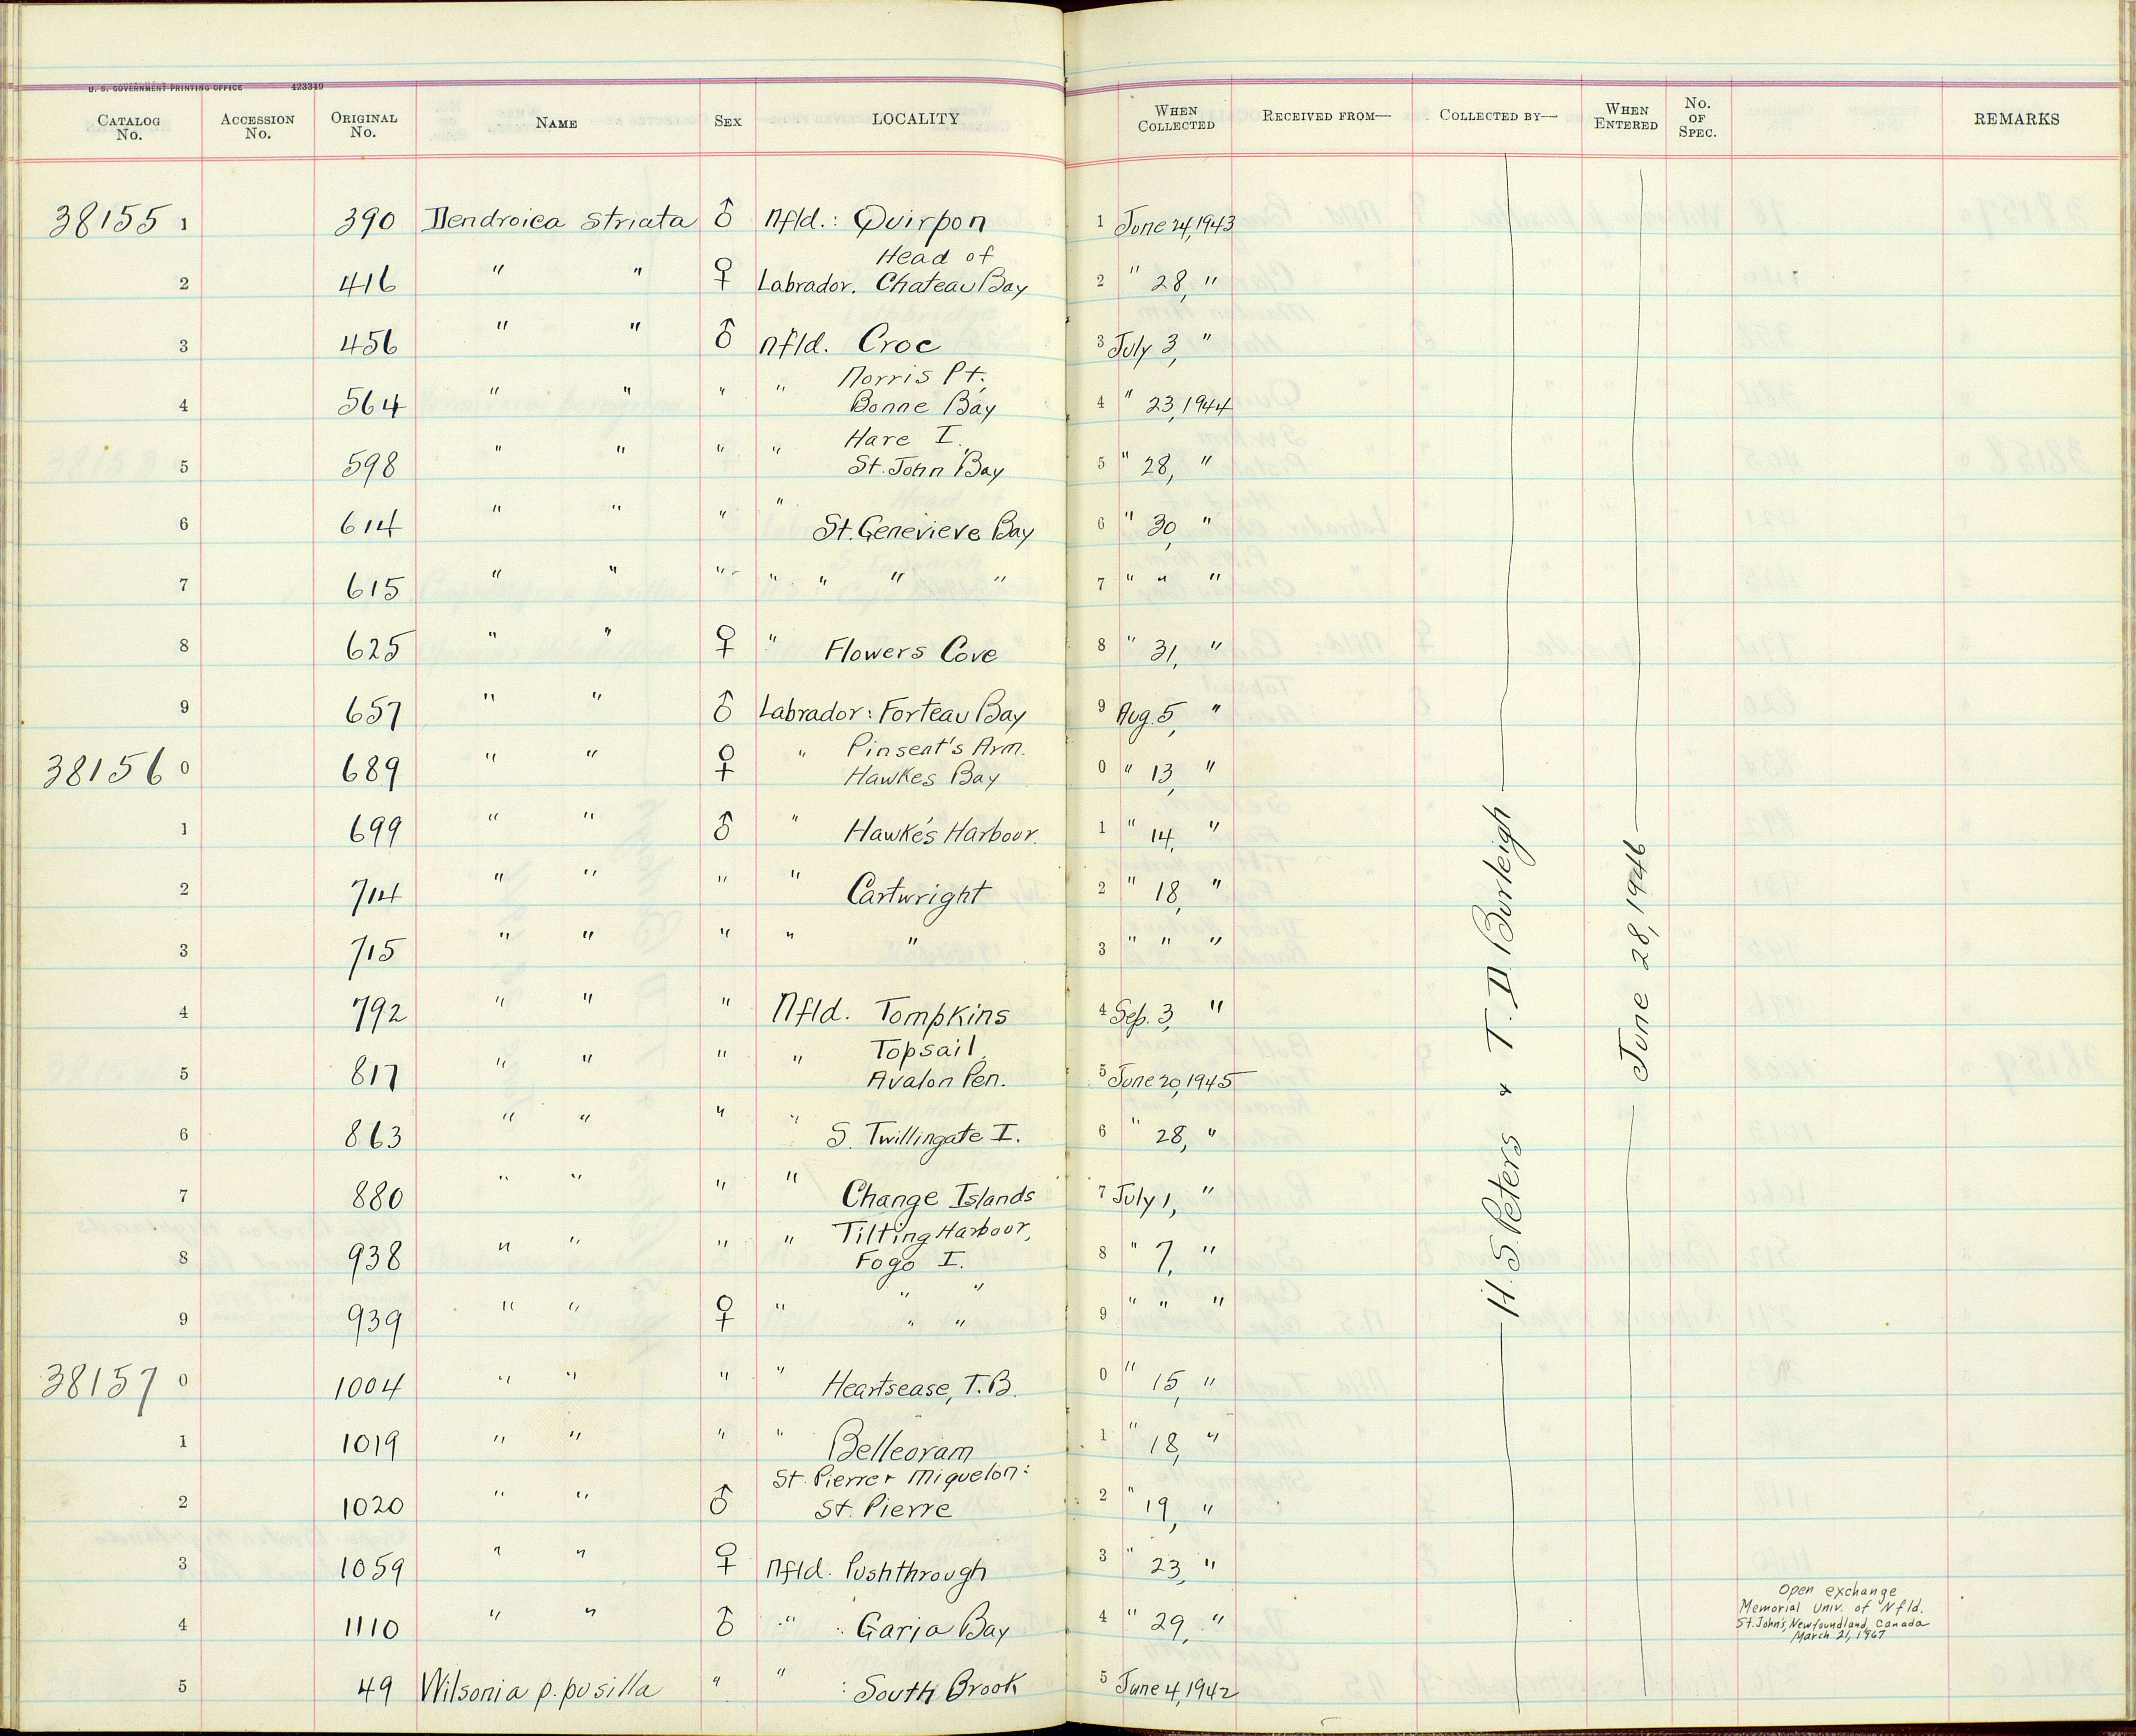 U. S. GOVERNMENT PRINTING OFFICE 423349
CATALOG No. ACCESSION No. ORIGINAL No. NAME SEX LOCALITY WHEN COLLECTED RECEIVED FROM— COLLECTED BY— WHEN ENTERED No. OF SPEC. REMARKS
38155 1 390 Dendroica striata ♂ Nfld.: Quirpon 1 June 24, 1943
Head of
2 416 " " ♀ Labrador. Chateau Bay 2 " 28, "
3 456 " " ♂ Nfld. Croc 3 July 3, "
Norris Pt.,
4 564 " " " " Bonne Bay 4 " 23, 1944
Hare I.,
5 598 " " " " St. John Bay 5 " 28, "
6 614 " " " " St. Genevieve Bay 6 " 30, "
7 615 " " " " " " " 7 " " "
8 625 " " ♀ " Flowers Cove 8 " 31, "
9 657 " " ♂ Labrador: Forteau Bay 9 Aug. 5, "
Pinsent's Arm.
38156 0 689 " " ♀ " Hawkes Bay 0 " 13, "
1 699 " " ♂ " Hawke's Harbour. 1 " 14, "
2 714 " " " " Cartwright 2 " 18, "
3 715 " " " " " 3 " " "
4 792 " " " Nfld. Tompkins 4 Sep. 3, "
Topsail,
5 817 " " " " Avalon Pen. 5 June 20, 1945
6 863 " " " " S. Twillingate I. 6 " 28, "
7 880 " " " " Change Islands 7 July 1, "
Tilting Harbour,
8 938 " " " " Fogo I. 8 " 7, "
" "
9 939 " " ♀ " " " 9 " " "
38157 0 1004 " " " " Heartsease, T.B. 0 " 15, "
1 1019 " " " " Belleoram 1 " 18, "
St. Pierre + Miquelon:
2 1020 " " ♂ St. Pierre 2 " 19, "
3 1059 " " ♀ Nfld. Pushthrough 3 " 23, "
4 1110 " " ♂ " : Garia Bay 4 " 29, "
Open exchange
Memorial Univ. of Nfld.
St. John's, Newfoundland, Canada
March 21, 1967
5 49 Wilsonia p. pusilla " " : South Brook 5 June 4, 1942
H. S. Peters & T. D. Burleigh
June 28, 1946